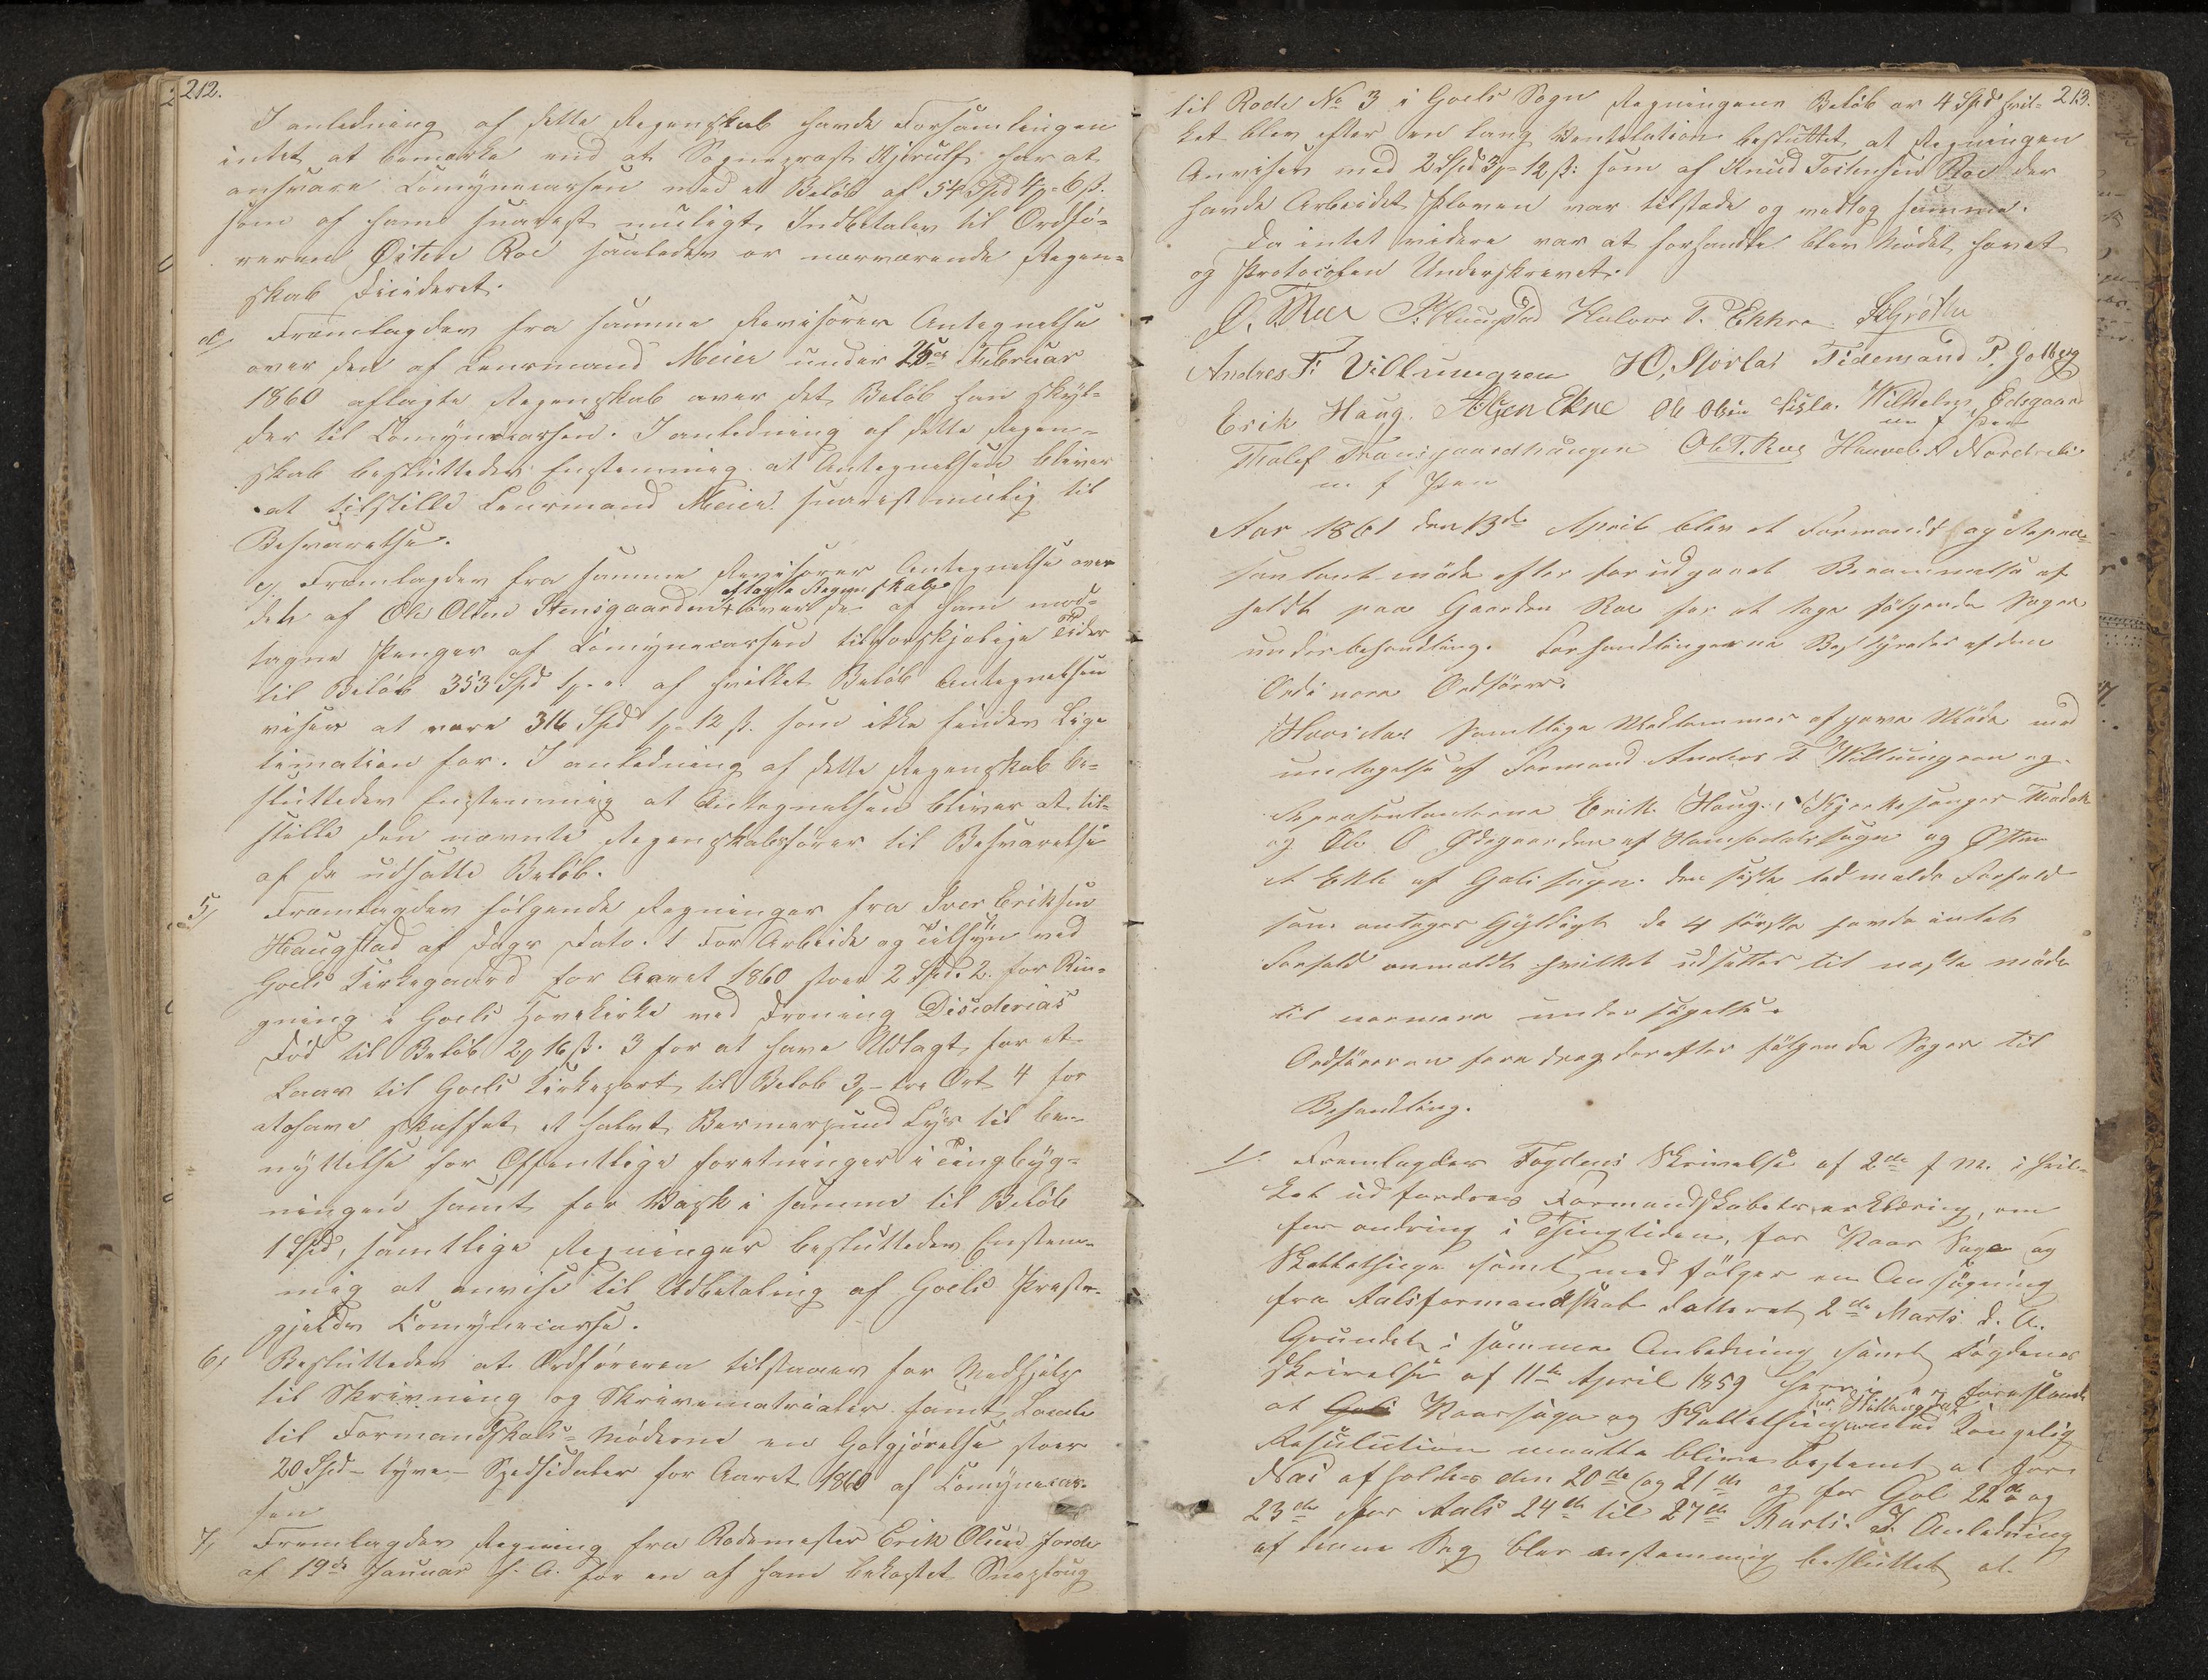 212.
I anledning af dette Regenskab havde Forsamlingen
intet at bemærke end at Sogneprest Kjerulf har at
ansvare Comynecassen med et Beløb af 54 Spd 4 - 6 ß.
som af ham snarest muligt, Indbetales til Ordfø-
reren Østen Roe saaledes er nærværende Regen-
skab Desideret.
d, Fremlagdes fra samme Revisorer Antegnelse
over den af Lensmand Meier under 25de Februar
1860 aflagte Regenskab over det Beløb han skyl-
der til Comynecassen. I anledning af dette Regen-
skab besluttedes Enstemmig at Antegnelsen bliver
at tilstille Lensmand Meier snarest mulig til
Besvarelse.
e, Fremlagdes fra samme Revisorer Antegnelse over
aflagte Regenskab
det af Ole Olsen Stensgaarden over de af ham mod-
tagne Penger af Comynecassen til forskjelige Tider
til Beløb 353 Spd af hvilket Beløb Antegnelsen
viser at være 316 Spd 1 - 12 ß. som ikke findes Legi
timation for. I anledning af dette Regenskab be-
sluttedes Enstemmig at Antegnelsen bliver at til-
stille den nævnte Regenskabsfører til Besvarelse
af de udsatte Beløb.
5, Fremlagdes følgende Regninger fra Iver Eriksen
Haugstad af Dags Dato. 1 For Arbeide og Tilsyn ved
Goels Kirkegaard for Aaret 1860 stor 2 Spd. 2. for Rin-
gning i Goels Hovekirke ved Dronning Desiderias
Død til Beløb 2 16 ß. 3 for at have Udlagt for et
Laas til Goels Kirkeport til Beløb 3 - tre Ort 4 for
at have skaffet et halvt Bismerpund Lys til be-
nyttelse for Offentlige foretninger i Tingbyg-
ningen samt for Vask i samme til Beløb
1 Spd, samtlige Regninger besluttedes Enstem-
mig at anvise til Udbetaling af Goels Præste-
gjelds Comynecasse.
6, Besluttedes at Ordføreren tilstaaes for Medhjelp
til Skrivning og Skrivematrialer samt Locale
til Formandskabs-Møderne en Gotgjørelse stor
20 Spd - tyve - Spesidaler for Aaret 1860 af Comynecas-
sen
7, Fremlagdes Regning fra Rodemester Erik Olsen Jorde
af 19de Januar d. A. for en af ham bekostet Sneploug
213.
til Rode No 3 i Goels Sogn Regningens Beløb er 4 Spd hvil-
ket blev efter en lang Ventelation besluttet at Regningen
Anvises med 2 Spd 3 - 12 ß: som af Knud Tostensen Roe der
havde Arbeidet Ploven var tilstede og vedtog samme.
Da intet videre var at forhandle blev Mødet hævet
og Protocolen Underskrevet.
Ø. T. Roe Haugstad Halvor T. Ekkre
Andres T. Villumgren H. O. Storlas Tidemand P. Golberg
Erik Haug. Ekre Ole Olsen Sisla. Wilhelm Ødegaard
m f Pen
Tholef Tronsgaardhaugen Ole T. Roe
m f Pen
Aar 1861 den 13de April blev et Formands og Repræ-
sentantmøde efter forudgaaet Berammelse af
holdt paa Gaarden Roe for at tage følgende Sager
under behandling. Forhandlingerne Bestyredes af den
Ordinære Ordfører.
Hvor da Samtlige Medlemmer afgave Møde med
undtagelse af Formand Anders T. Willumgren og
Representanterne Erik Haug, Kjerkesanger
og Ole O Ødegaarden af Hemsedals sogn og Østen
Ekle af Gols sogn. den siste lod melde Forfald
som antages Gyldigt de 4 første havde intet
Forfald anmeldt hvilket udsettes til neste møde
til nærmere undersøgelse.
Ordføreren foredrog derefter følgende Sager til
Behandling.
1/. Fremlagdes Fogdens Skrivelse af 2de f. M. i hvil-
ket udfordres Formandskabets erklæring, om
forandring i Tingtiden, for Vaar Sage og
Skattethinge samt medfølger en Ansøgning
fra Aals formandskab datteret 2de Marts d. A.
Grundet i samme Anledning samt Fogdens
Skrivelse af 11te April 1859 foreslaaet
for Hallingdal
at Vaarsage og Skattethinger ved Kongelig
Resulution maatte blive bestemt at for
Næs afholdes den 20de og 21de og for Gol 22de og
23de for Aals 24de til 27de Marts. I Anledning
af denne Sag blev enstemmig besluttet at